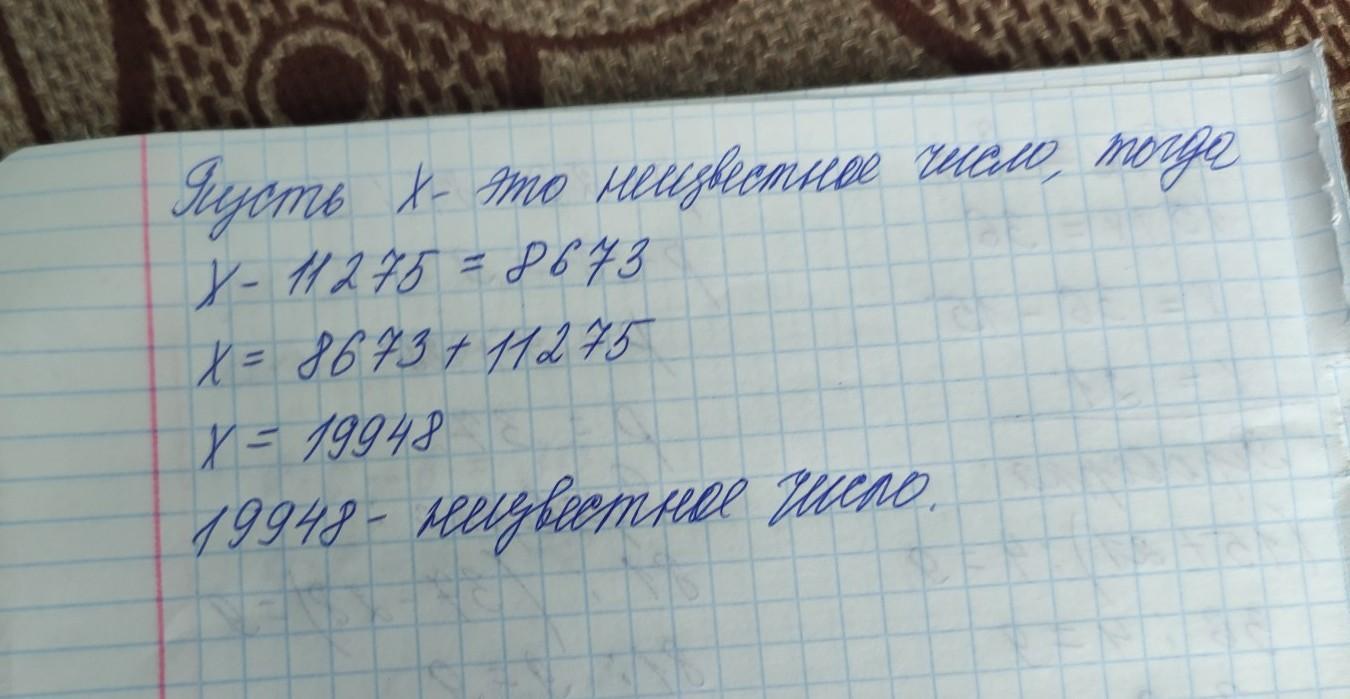 Пусть X - это неизвестное число, тогда
X - 11275 = 8673
X = 8673 + 11275
X = 19948
19948 - неизвестное число.